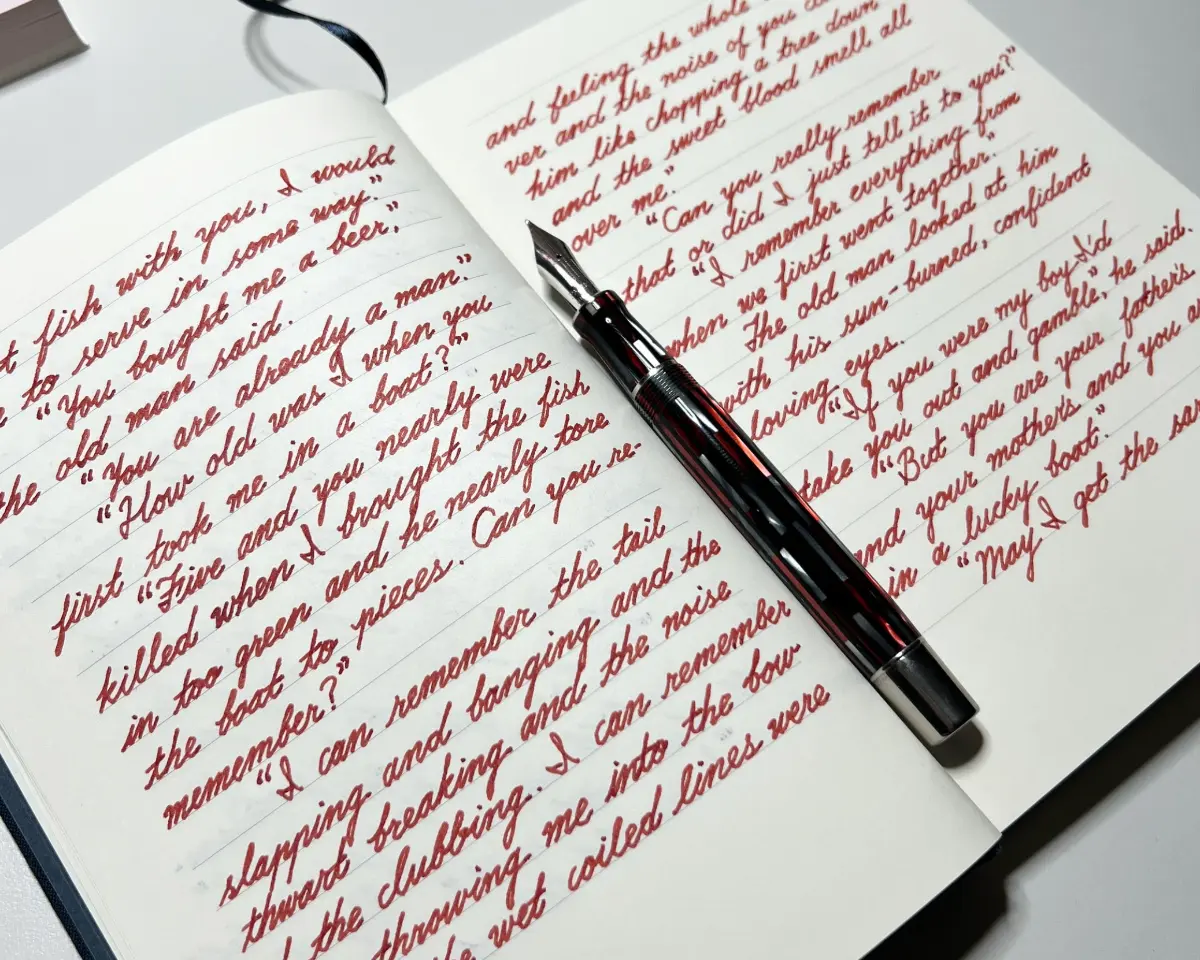 fish with you, I would
to serve in some way."
"You bought me a beer,"
the old man said.
"You are already a man."
"How old was I when you
first took me in a boat?"
"Five and you nearly were
killed when I brought the fish
in too green and he nearly tore
the boat to pieces. Can you re-
memember?"
"I can remember the tail
slapping and banging and the
thwart breaking and the noise
the clubbing. I can remember
throwing me into the bow
wet coiled lines were
and feeling the whole
ver and the noise of you
him like chopping a tree down
and the sweet blood smell all
over me."
"Can you really remember
that or did I just tell it to you?"
"I remember everything from
when we first went together."
The old man looked at him
with his sun-burned, confident
loving eyes.
"If you were my boy I'd
take you out and gamble," he said.
"But you are your father's
and your mother's and you
in a lucky boat."
"May I get the